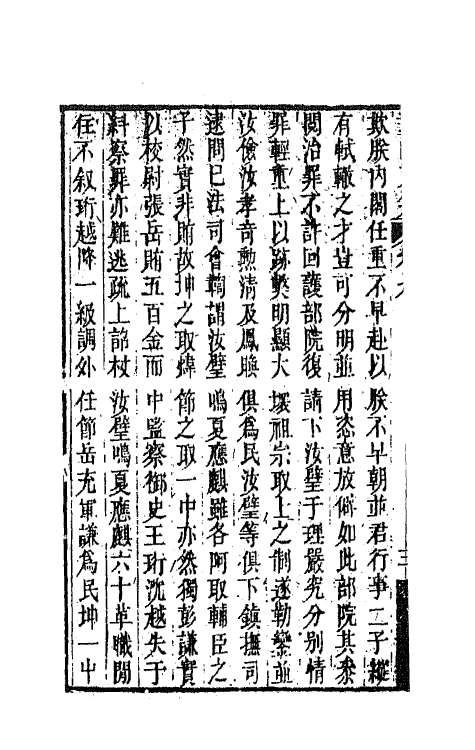 欺朕内閣任重不早赴以朕不早朝並君行事二子縱
有軾轍之才豈可分明並用恣意放僻如此部院其叅
閱治罪不許回護部院復請下汝璧于理嚴究分别情
罪輕重上以跡獘明顯大壞祖宗取士之制遂勒鑾並
汝儉汝孝竒勲清及鳳俱爲民汝璧等俱下鎮撫司
逮問已法司會鞫謂汝璧鳴夏應麒雖各阿取輔臣之
子然實非賄故坤之取煒節之取一中亦然獨彭謙實
以校尉張岳賄五百金而中監察御史王珩沈越失于
糾察罪亦難逃疏上詔杖汝璧鳴夏應麒六十革職閒
住不叙珩越降一級調外任節岳充軍謙爲民坤一中